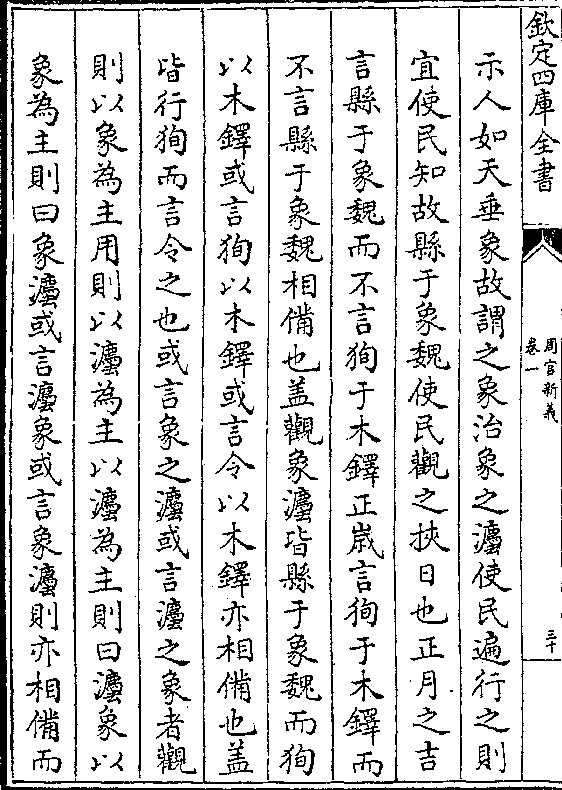 欽定四庫全書
周官新義
卷一
三十
示人如天垂象故謂之象治象之灋使民遍行之則
宜使民知故縣于象魏使民觀之挾日也正月之吉
言縣于象魏而不言狥于木鐸正嵗言狥于木鐸而
不言縣于象魏相備也盖觀象灋皆縣于象魏而狥
以木鐸或言狥以木鐸或言令以木鐸亦相備也盖
皆行狥而言令之也或言象之灋或言灋之象者觀
則以象為主用則以灋為主以灋為主則曰灋象以
象為主則曰象灋或言灋象或言象灋則亦相備而